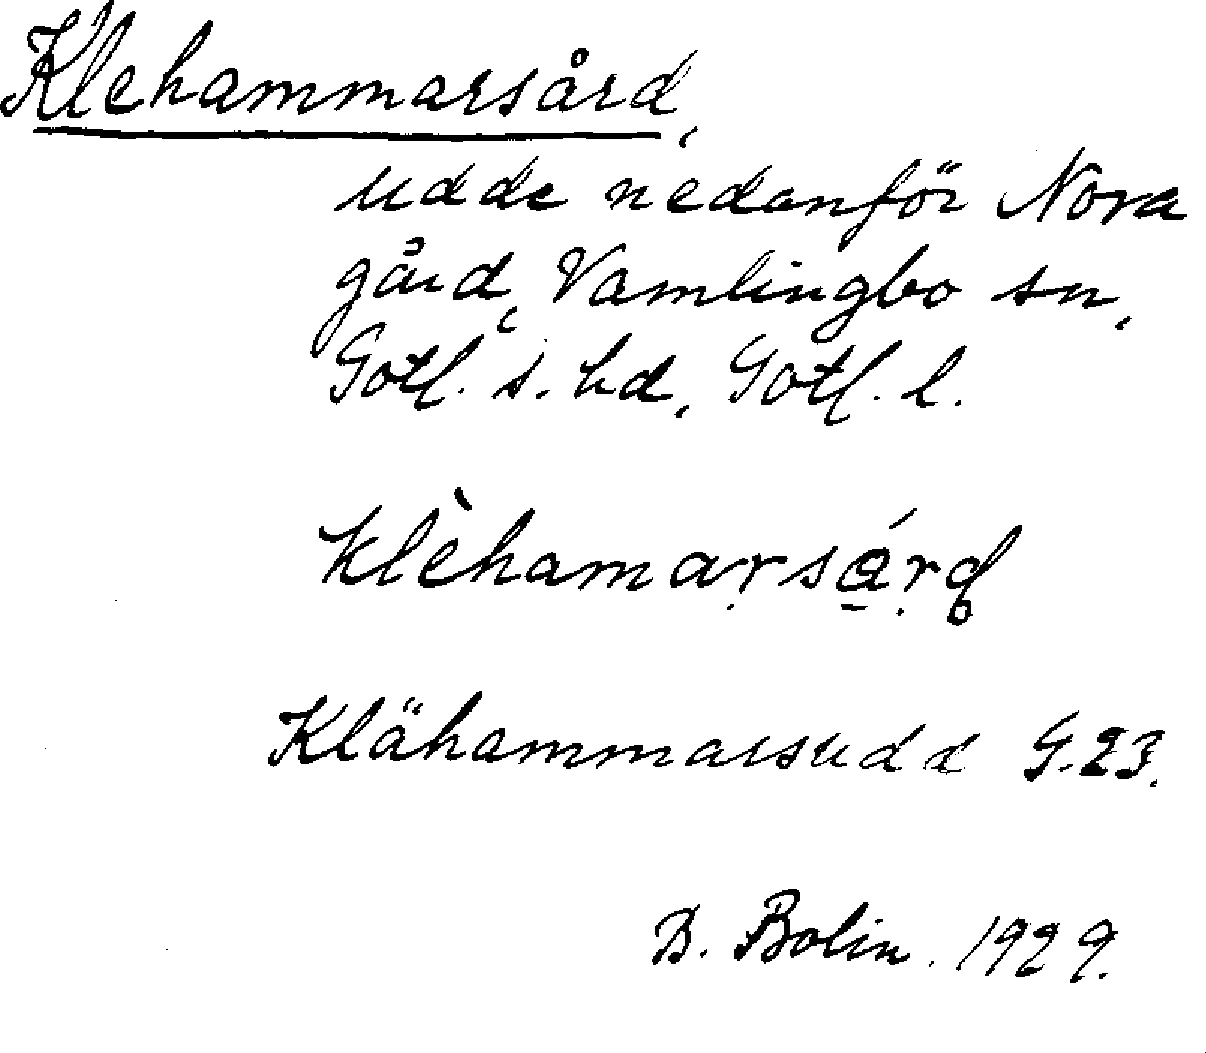 Klehammarsård,
udde nedanför Nora
gård, Vamlingbo sn,
Gotl. s. hd, Gotl. l.
klèhamarsárd
Klähammarsudd G.23.
B. Bolin. 1929.